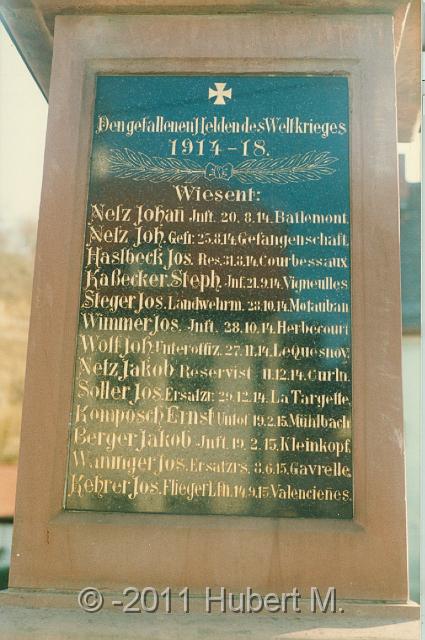 Den gefallenen Helden des Weltkrieges
1914-18.
Wiesent:
Netz Johan Jnft. 20. 8. 14. Batlemont.
Netz Joh. Gefr. 25.8.14. Gefangenschaft.
Haslbeck Jos. Res. 31.8.14. Courbessaux.
Kaßecker Steph. Jnf. 21.9.14. Vigneulles
Steger Jos. Landwehrm. 28.10.14. Motauban
Wimmer Jos. Jnft. 28.10.14. Herbecourt
Wolf Joh. Unteroffiz. 27.11.14. Le Quesnoy.
Netz Jakob Reservist 11.12.14. Curln.
Soller Jos. Ersatzr. 29.12.14. La Targette.
Komposch Ernst Untof 19.2.15. Mühlbach
Berger Jakob Jnft. 19. 2. 15. Kleinkopf.
Waninger Jos. Ersatzrs. 8.6.15. Gavrelle.
Kehrer Jos. Flieger Lfh. 14.9.15 Valencienes.
© -2011 Hubert M.